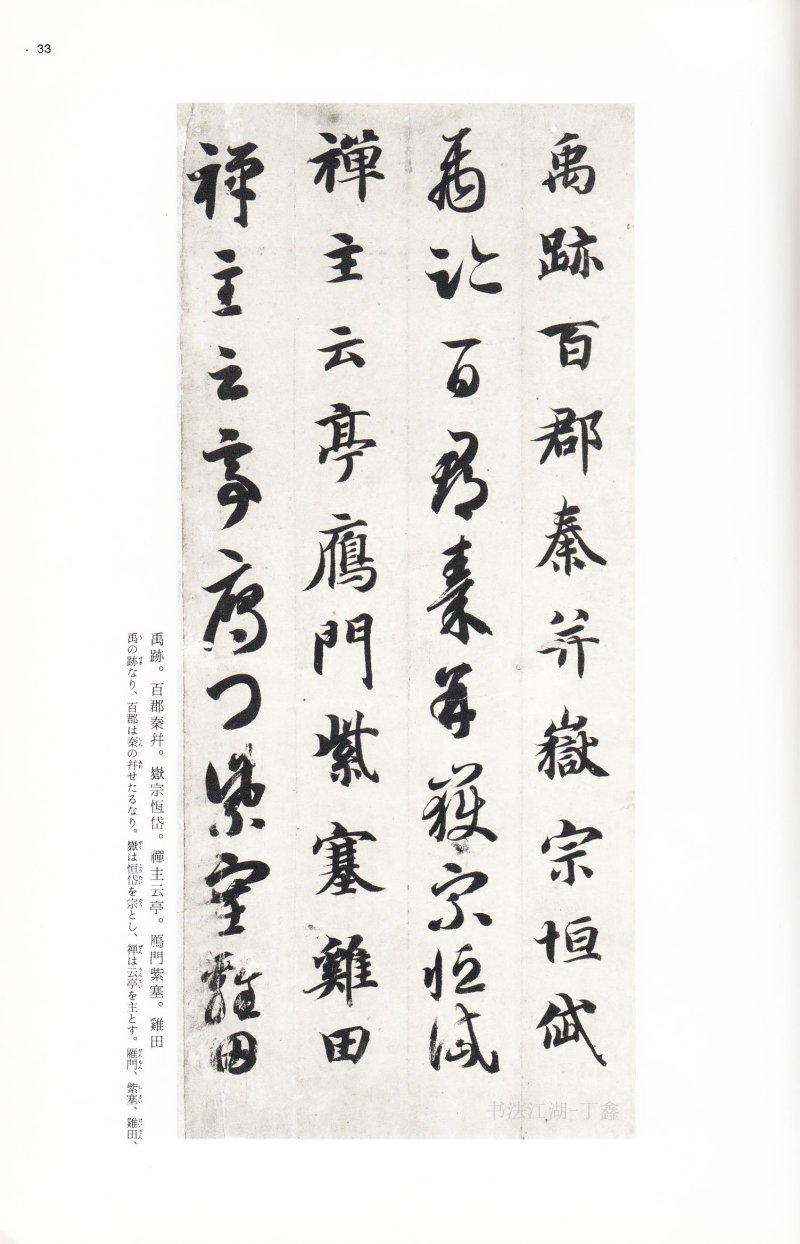 33
禹跡百郡秦并嶽宗恒岱
禹跡百郡秦并嶽宗恒岱
禪主云亭鴈門紫塞雞田
禪主云亭鴈門紫塞雞田
禹跡。百郡秦幷。嶽宗恆岱。禪主云亭。鴈門紫塞。雞田
禹の跡なり、百郡は秦の幷せたるなり。嶽は恒岱を宗とし、禅は云亭を主とす。雁門、紫塞、雞田、
书法江湖-丁鑫